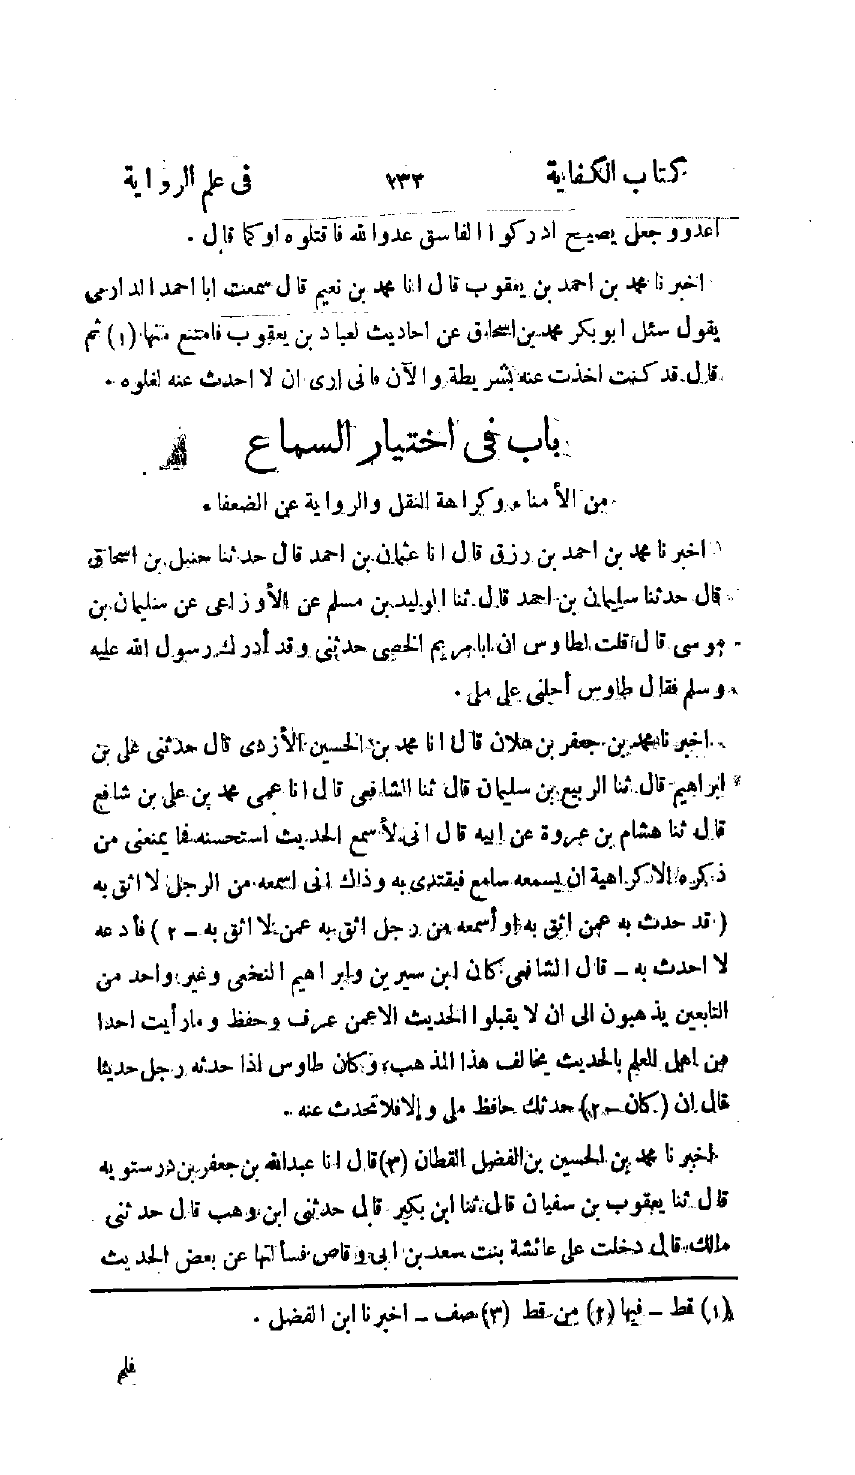 كتاب الكفاية ١٣٢ فى علم الرواية
اعدوو جعل يصيح ادركوا الفاسق عدوالله فاقتلوه اوكما قال .
اخبرنا محمد بن احمد بن يعقوب قال انا محمد بن نعيم قال سمعت ابا احمد الدارمى
يقول سئل ابوبكر محمد بن اسحاق عن احاديث لعباد بن يعقوب فامتنع منها (١) ثم
قال قد كنت اخذت عنه بشريطة والآن فانى ارى ان لا احدث عنه لغلوه .
باب فى اختيار السماع
من الأمناء وكراهة النقل والرواية عن الضعفاء
اخبرنا محمد بن احمد بن رزق قال انا عثمان بن احمد قال حدثنا حنبل بن اسحاق
قال حدثنا سليمان بن احمد قال ثنا الوليد بن مسلم عن الأوزاعى عن سليمان بن
موسى قال قلت لطاوس ان ابا مريم الخصى حدثنى وقد أدرك رسول الله عليه
وسلم فقال طاوس أحلنى على ملى .
اخبرنا محمد بن جعفر بن علان قال انا محمد بن الحسين الأزدى قال حدثنى على بن
ابراهيم قال ثنا الربيع بن سليمان قال ثنا الشافعى قال انا عمى محمد بن على بن شافع
قال ثنا هشام بن عروة عن ابيه قال انى لأسمع الحديث استحسنه فما يمنعنى من
ذكره الاكراهية ان يسمعه سامع فيقتدى به وذاك انى اسمعه من الرجل لا اثق به
( قد حدث به عمن اثق به او أسمعه من رجل اثق به عمن لا اثق به - ٢ ) فأدعه
لا احدث به - قال الشافعى كان ابن سيرين وابراهيم النخعى وغير واحد من
التابعين يذهبون الى ان لا يقبلوا الحديث الاعمن عرف وحفظ ومارأيت احدا
من اهل العلم بالحديث يخالف هذا المذهب وكان طاوس اذا حدثه رجل حديثا
قال ان (كان - ٢) حدثك حافظ ملى والافلا تحدث عنه .
اخبرنا محمد بن الحسين بن الفضل القطان (٣) قال انا عبدالله بن جعفر بن درستويه
قال ثنا يعقوب بن سفيان قال ثنا ابن بكير قال حدثنى ابن وهب قال حدثنى
مالك قال دخلت على عائشة بنت سعد بن ابى وقاص فسألتها عن بعض الحديث
(١) قط - فيها (٢) من قط (٣) صف - اخبرنا ابن الفضل .
فلم